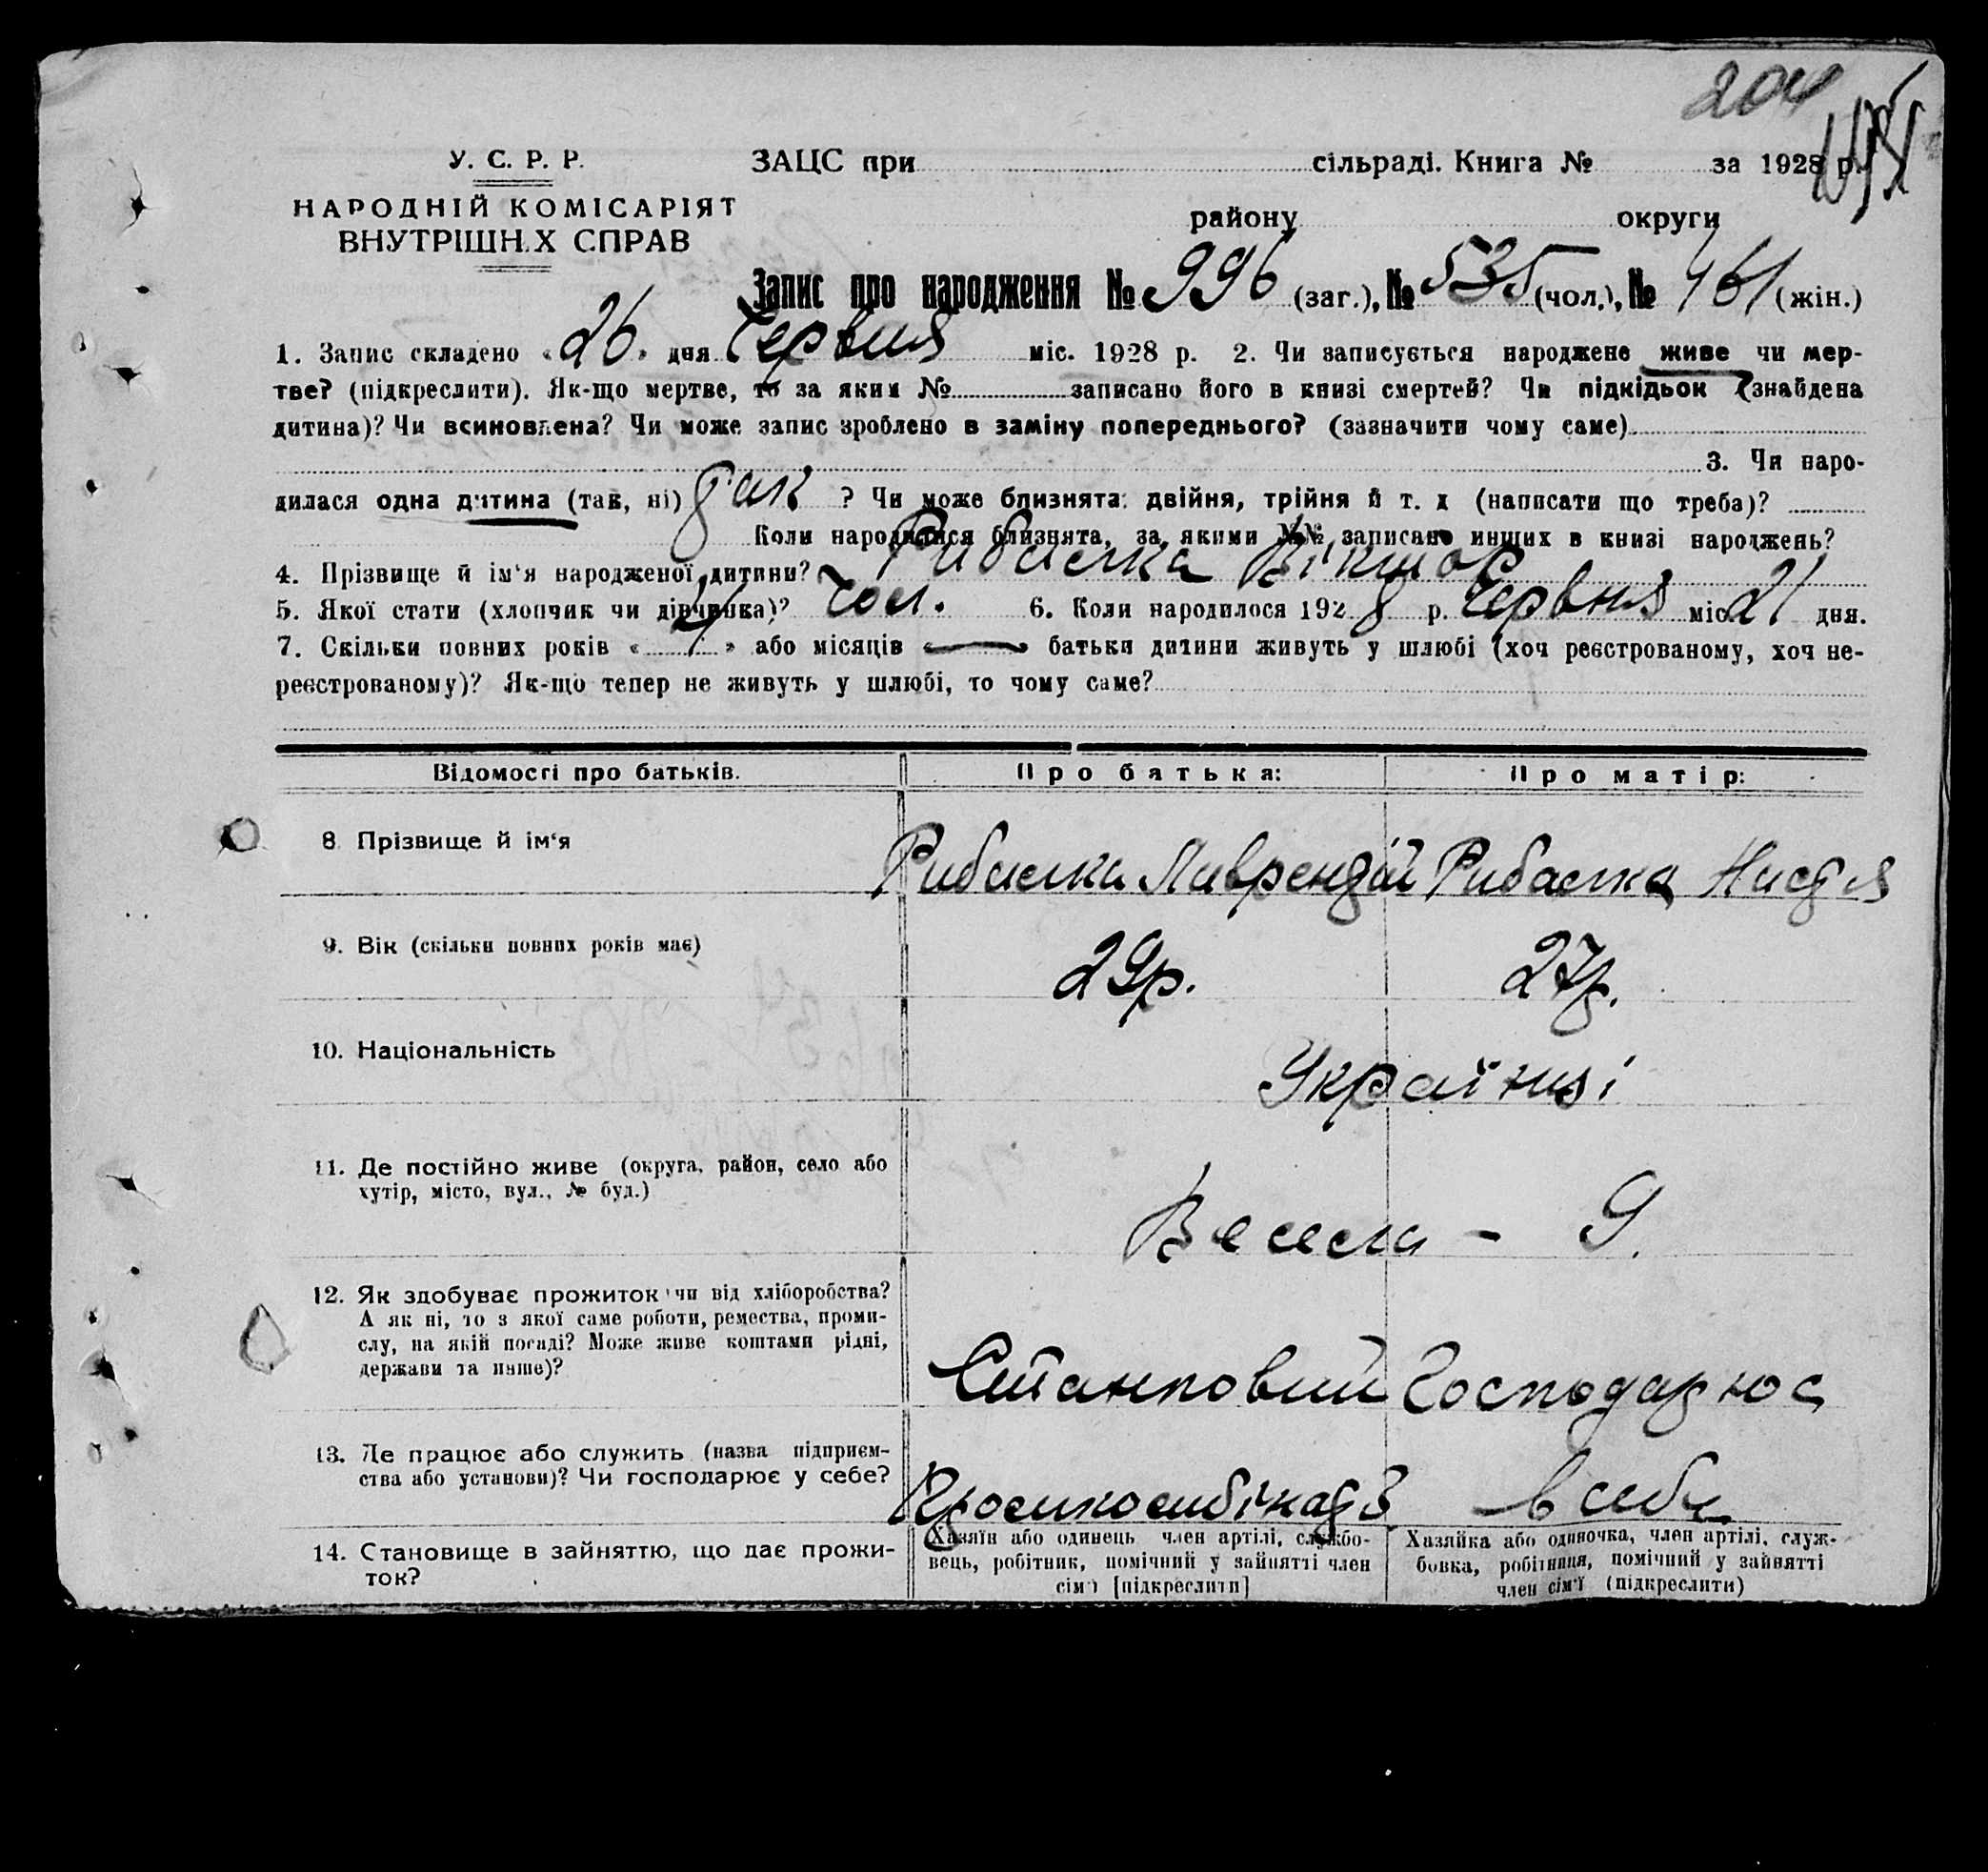 204
У. С. Р. Р.
НАРОДНІЙ КОМІСАРІЯТ
ВНУТРІШНІХ СПРАВ
ЗАЦС при сільраді. Книга № за 1928 р.
району округи
Запис про народження № 996 (заг.), № 535 (чол.), № 461 (жін.)
1. Запис складено «26» дня Червня міс. 1928 р. 2. Чи записується народжене живе чи мер-
тве? (підкреслити). Як-що мертве, то за яким № записано його в книзі смертей? Чи підкідьок (знайдена
дитина)? Чи всиновлена? Чи може запис зроблено в заміну попереднього? (зазначити чому саме)
3. Чи наро-
дилася одна дитина (так, ні) так ? Чи може близнята: двійня, трійня й т. д (написати що треба)?
Коли народилися близнята, за якими №№ записано инших в книзі народжень?
4. Прізвище й ім'я народженої дитини? Рибалка Віктор
5. Якої стати (хлопчик чи дівчинка)? чол. 6. Коли народилося 1928 р. Червня міс. 21 дня.
7. Скільки повних років « » або місяців «—» батьки дитини живуть у шлюбі (хоч реєстрованому, хоч не-
реєстрованому)? Як-що тепер не живуть у шлюбі, то чому саме?
Відомості про батьків. Про батька: Про матір:
8 Прізвище й ім'я Рибалка Лаврентій Рибалка Настя
9. Вік (скільки повних років має) 29р. 27р.
10. Національність Українці
11. Де постійно живе (округа, район, село або
хутір, місто, вул., № буд.)
Весела - 9.
12. Як здобуває прожиток чи від хліборобства?
А як ні, то з якої саме роботи, ремества, проми-
слу, на якій посаді? Може живе коштами рідні,
держави та инше)?
Штамповий Господарює
13. Де працює або служить (назва підприєм-
ства або установи)? Чи господарює у себе?
в себе
14. Становище в зайняттю, що дає прожи-
ток?
Хазяїн або одинець член артілі, службо-
вець, робітник, помічний у зайнятті член
сім'ї [підкреслити]
Хазяйка або одиночка, член артілі, служ-
бовка, робітниця, помічний у зайнятті
член сім'ї (підкреслити)